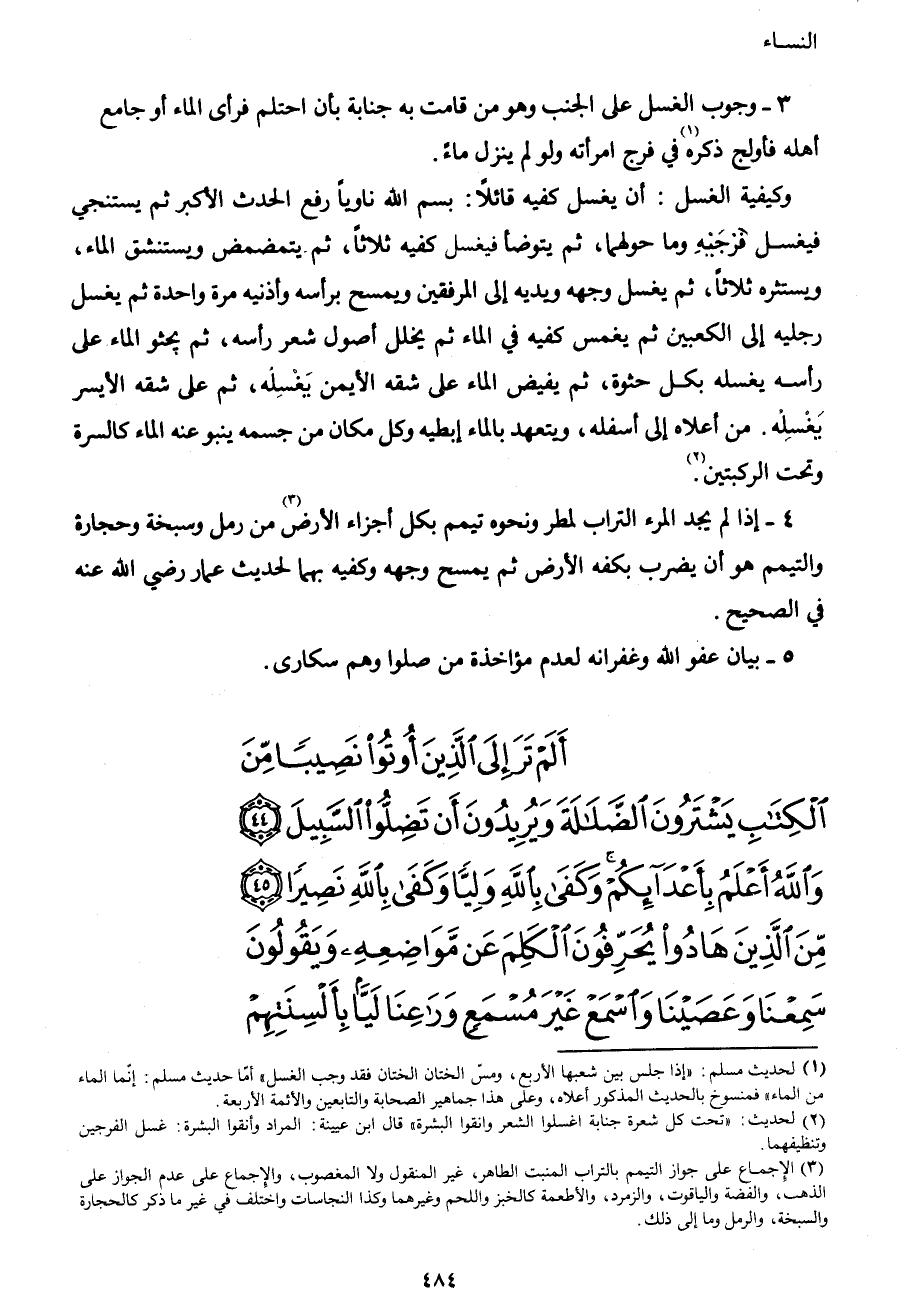 النساء
٣ ـ وجوب الغسل على الجنب وهو من قامت به جنابة بأن احتلم فرأى الماء أو جامع
أهله فأولج ذكره(١) في فرج امرأته ولو لم ينزل ماءً.
وكيفية الغسل : أن يغسل كفيه قائلاً: بسم الله ناوياً رفع الحدث الأكبر ثم يستنجي
فيغسل فَرْجَيْهِ وما حولهما، ثم يتوضأ فيغسل كفيه ثلاثاً، ثم يتمضمض ويستنشق الماء،
ويستنثره ثلاثاً، ثم يغسل وجهه ويديه إلى المرفقين ويمسح برأسه وأذنيه مرة واحدة ثم يغسل
رجليه إلى الكعبين ثم يغمس كفيه في الماء ثم يخلل أصول شعر رأسه، ثم يحثو الماء على
رأسه يغسله بكل حثوة، ثم يفيض الماء على شقه الأيمن يَغْسِلُه، ثم على شقه الأيسر
يَغْسِلُه. من أعلاه إلى أسفله، ويتعهد بالماء إبطيه وكل مكان من جسمه ينبو عنه الماء كالسرة
وتحت الركبتين.(٢)
٤ ـ إذا لم يجد المرء التراب لمطر ونحوه تيمم بكل أجزاء الأرض(٣) من رمل وسبخة وحجارة
والتيمم هو أن يضرب بكفه الأرض ثم يمسح وجهه وكفيه بهما لحديث عمار رضي الله عنه
في الصحيح .
٥ ـ بيان عفو الله وغفرانه لعدم مؤاخذة من صلوا وهم سكارى.
أَلَمْ تَرَ إِلَى ٱلَّذِينَ أُوتُوا۟ نَصِيبًا مِّنَ
ٱلْكِتَٰبِ يَشْتَرُونَ ٱلضَّلَٰلَةَ وَيُرِيدُونَ أَن تَضِلُّوا۟ ٱلسَّبِيلَ ٤٤
وَٱللَّهُ أَعْلَمُ بِأَعْدَآئِكُمْ ۚ وَكَفَىٰ بِٱللَّهِ وَلِيًّا وَكَفَىٰ بِٱللَّهِ نَصِيرًا ٤٥
مِّنَ ٱلَّذِينَ هَادُوا۟ يُحَرِّفُونَ ٱلْكَلِمَ عَن مَّوَاضِعِهِۦ وَيَقُولُونَ
سَمِعْنَا وَعَصَيْنَا وَٱسْمَعْ غَيْرَ مُسْمَعٍ وَرَٰعِنَا لَيًّۢا بِأَلْسِنَتِهِمْ
(١) لحديث مسلم: «إذا جلس بين شعبها الأربع، ومسّ الختان الختان فقد وجب الغسل» أمّا حديث مسلم: إنّما الماء
من الماء» فمنسوخ بالحديث المذكور أعلاه، وعلى هذا جماهير الصحابة والتابعين والأئمة الأربعة.
(٢) لحديث: «تحت كل شعرة جنابة اغسلوا الشعر وانقوا البشرة» قال ابن عيينة: المراد وأنقوا البشرة: غسل الفرجين
وتنظيفهما.
(٣) الإجماع على جواز التيمم بالتراب المنبت الطاهر، غير المنقول ولا المغصوب، والإجماع على عدم الجواز على
الذهب، والفضة والياقوت، والزمرد، والأطعمة كالخبز واللحم وغيرهما وكذا النجاسات واختلف في غير ما ذكر كالحجارة
والسبخة، والرمل وما إلى ذلك.
٤٨٤